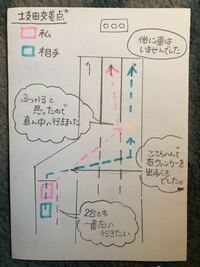 土支田交差点
私
相手
他に車は
いませんでした
ぶつかると
思ったので
真ん中へ行きました
ここらへんで
右ウィンカーを
出すべき
でした。
2台とも
一番右へ
行きたい